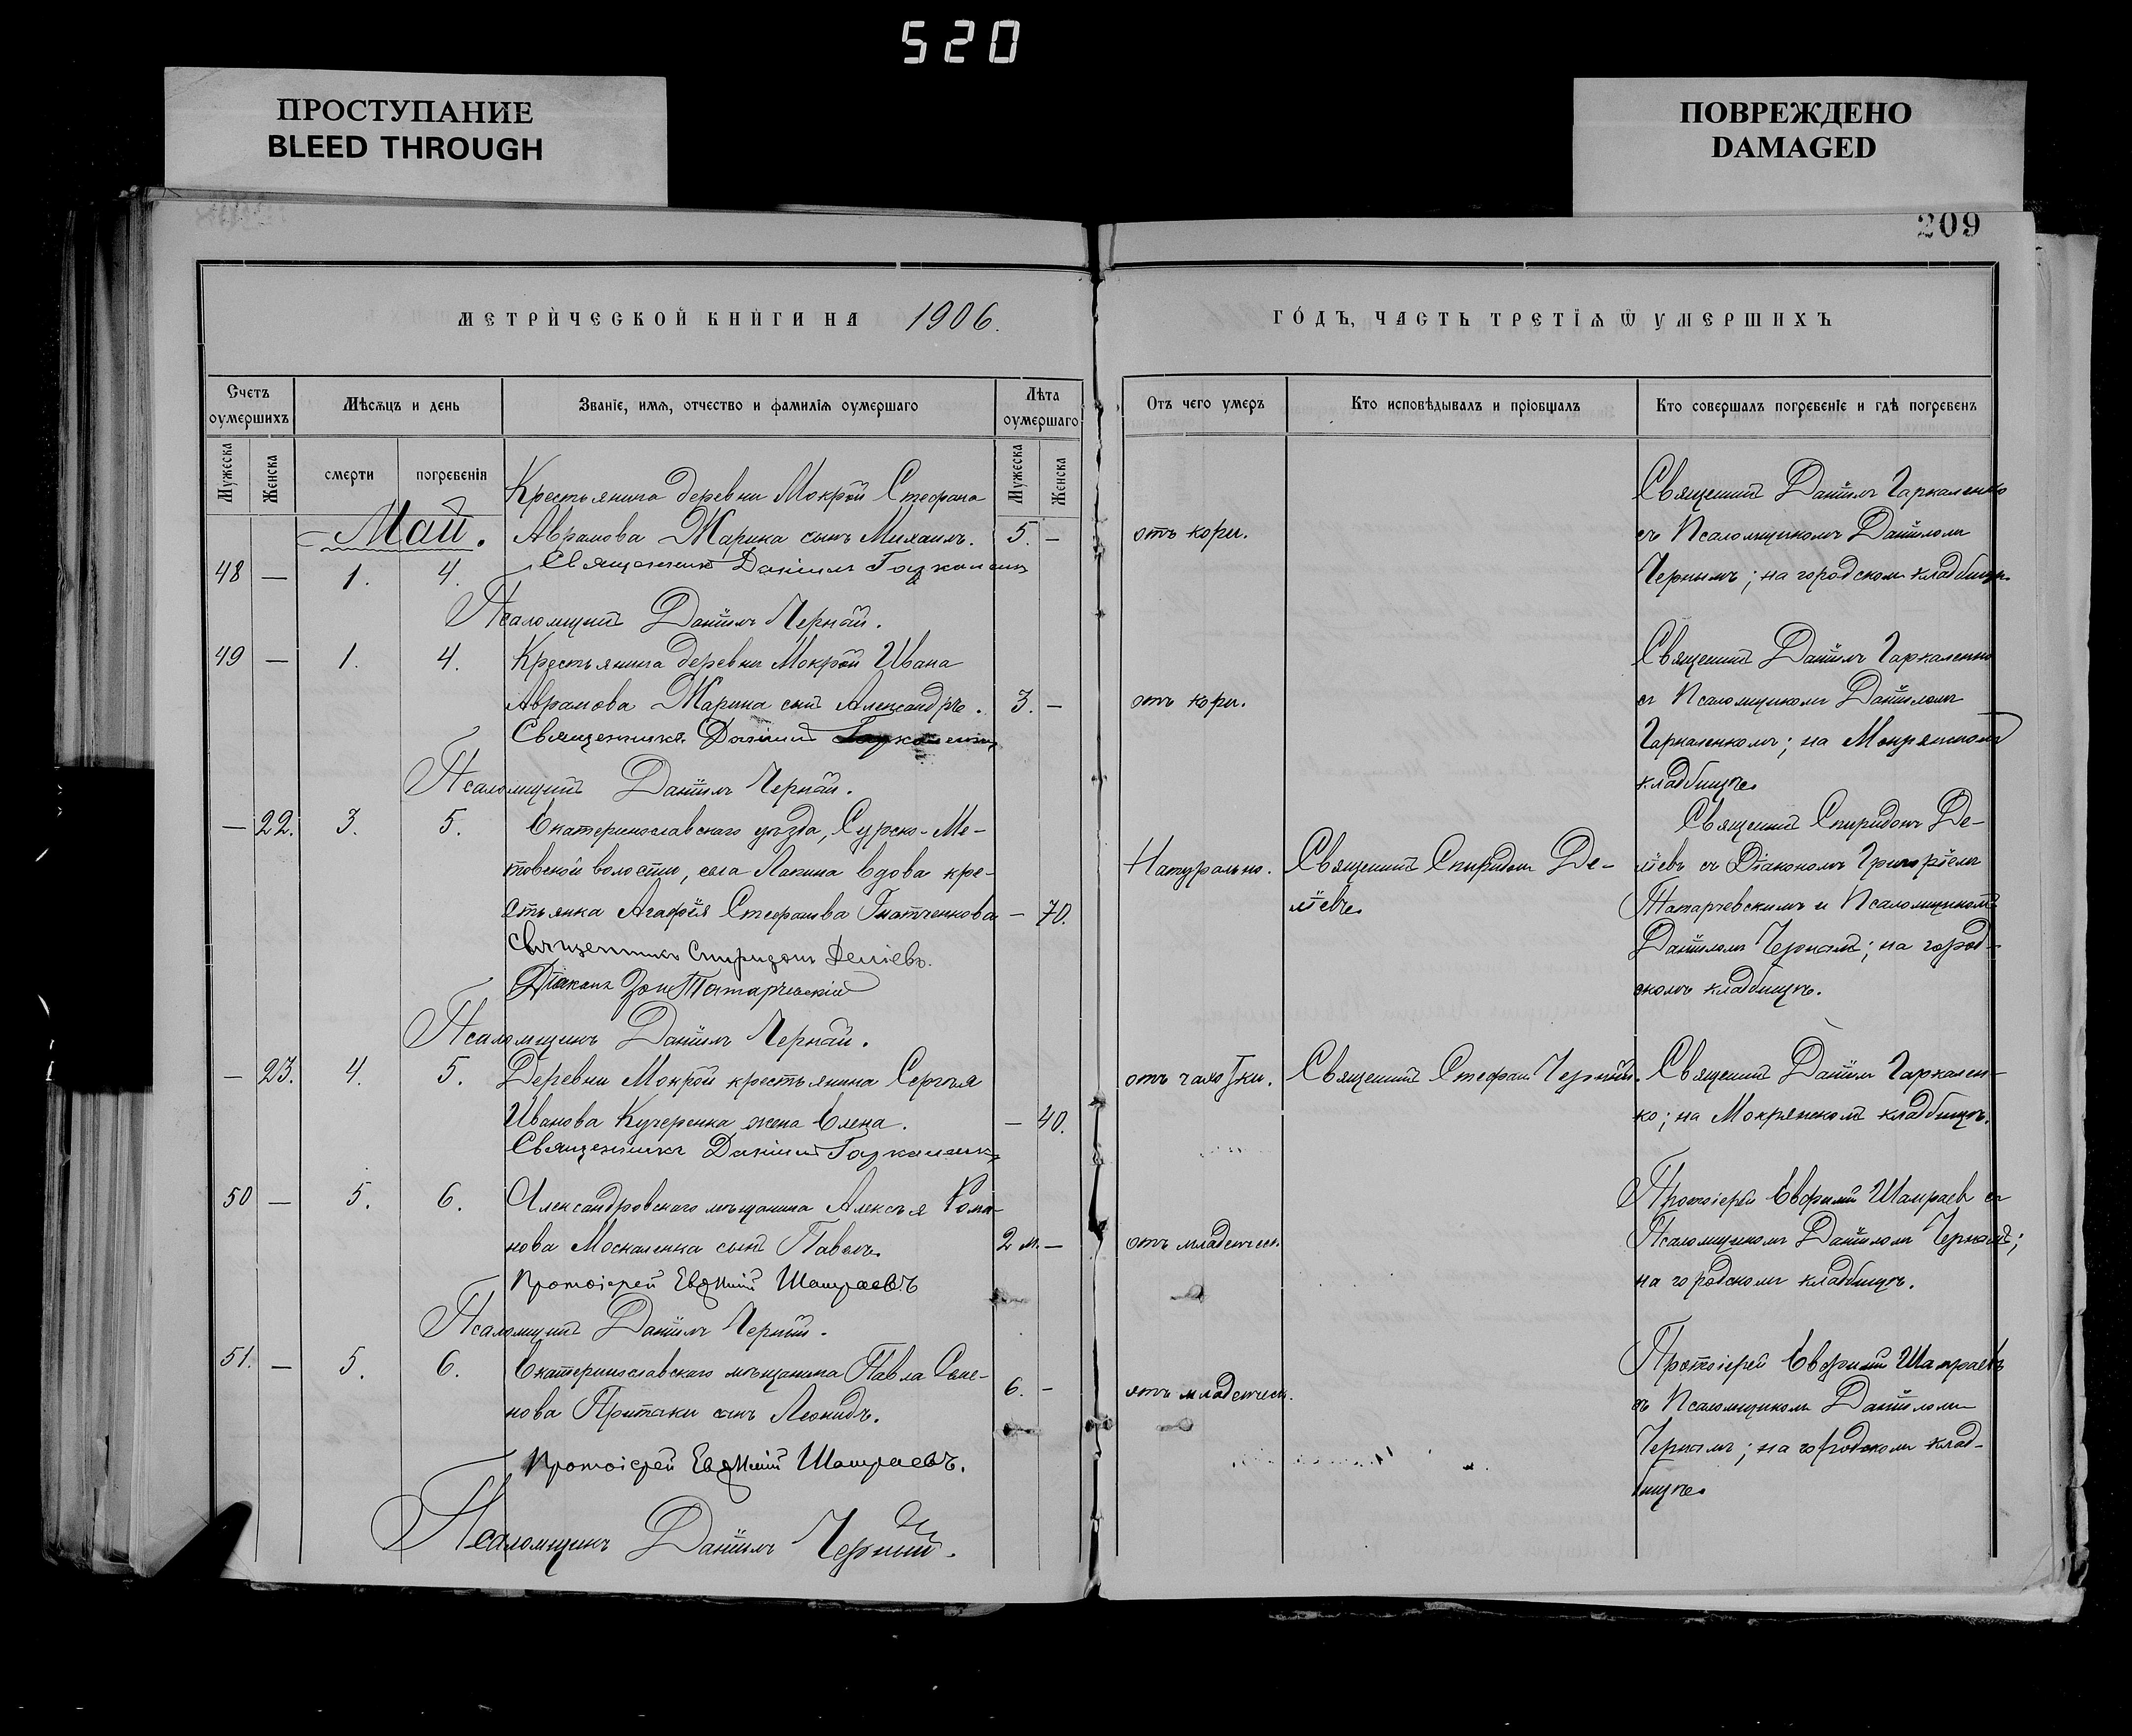 520
ПРОСТУПАНИЕ
BLEED THROUGH
ПОВРЕЖДЕНО
DAMAGED
209
МЕТРИЧЕСКОЙ КНИГИ НА 1906.
ГОДЪ, ЧАСТЬ ТРЕТІЯ Ѿ УМЕРШИХЪ
Счетъ оумершихъ
Мѣсяцъ и день
Званіе, имя, отчество и фамилія оумершаго
Лѣта оумершаго
Отъ чего умеръ
Кто исповѣдывалъ и пріобщалъ
Кто совершалъ погребеніе и гдѣ погребенъ
Мужеска
Женска
смерти
погребенія
Мужеска
Женска
Май.
48 — 1. 4.
Крестьянина деревни Мокрой Стефана
Аврамова Жарика сынъ Михаилъ. 5. —
Священникъ Даніилъ Гаркаленко
Псаломщикъ Даніилъ Черный.
отъ кори.
Священникъ Даніилъ Гаркаленко
съ Псаломщикомъ Даніиломъ
Чернымъ; на городскомъ кладбищѣ.
49 — 1. 4. Крестьянина деревни Мокрой Ивана
Аврамова Жарика сынъ Александръ. 3. —
Священникъ Даніилъ Гаркаленко
Псаломщикъ Даніилъ Черный.
отъ кори.
Священникъ Даніилъ Гаркаленко
съ Псаломщикомъ Даніиломъ
Гаркаленкомъ; на Мокрянскомъ
кладбищѣ.
— 22. 3. 5. Екатеринославскаго уѣзда, Сурско-
волости, села Лапина вдова кре-
стьянка Агафія Стефанова Гнатченкова — 70.
Священникъ Спиридонъ
Діаконъ Татарчевскій
Псаломщикъ Даніилъ Черный.
Натурально.
Священникъ Спиридонъ
Священникъ Спиридонъ
съ Діакономъ Григоріемъ
Татарчевскимъ и Псаломщикомъ
Даніиломъ Чернымъ; на город-
скомъ кладбищѣ.
— 23. 4. 5. Деревни Мокрой крестьянина Сергѣя
Иванова Кучеренка жена Елена. — 40.
Священникъ Даніилъ Гаркаленко
отъ чахотки.
Священникъ Стефанъ Черный.
Священникъ Даніилъ Гаркален-
ко; на Мокрянскомъ кладбищѣ.
50 — 5. 6. Александровскаго мѣщанина Алексѣя Рома-
нова Москаленка сынъ Павелъ. 2 м. —
Протоіерей Евфимій Шамраевъ
Псаломщикъ Даніилъ Черный.
отъ младенческ.
Протоіерей Евфимій Шамраевъ съ
Псаломщикомъ Даніиломъ Чернымъ;
на городскомъ кладбищѣ.
51. — 5. 6. Екатеринославскаго мѣщанина Павла
нова Притаки сынъ Леонидъ. 6. —
Протоіерей Евфимій Шамраевъ.
Псаломщикъ Даніилъ Черный.
отъ младенческ.
Протоіерей Евфимій Шамраевъ
съ Псаломщикомъ Даніиломъ
Чернымъ; на городскомъ клад-
бищѣ.